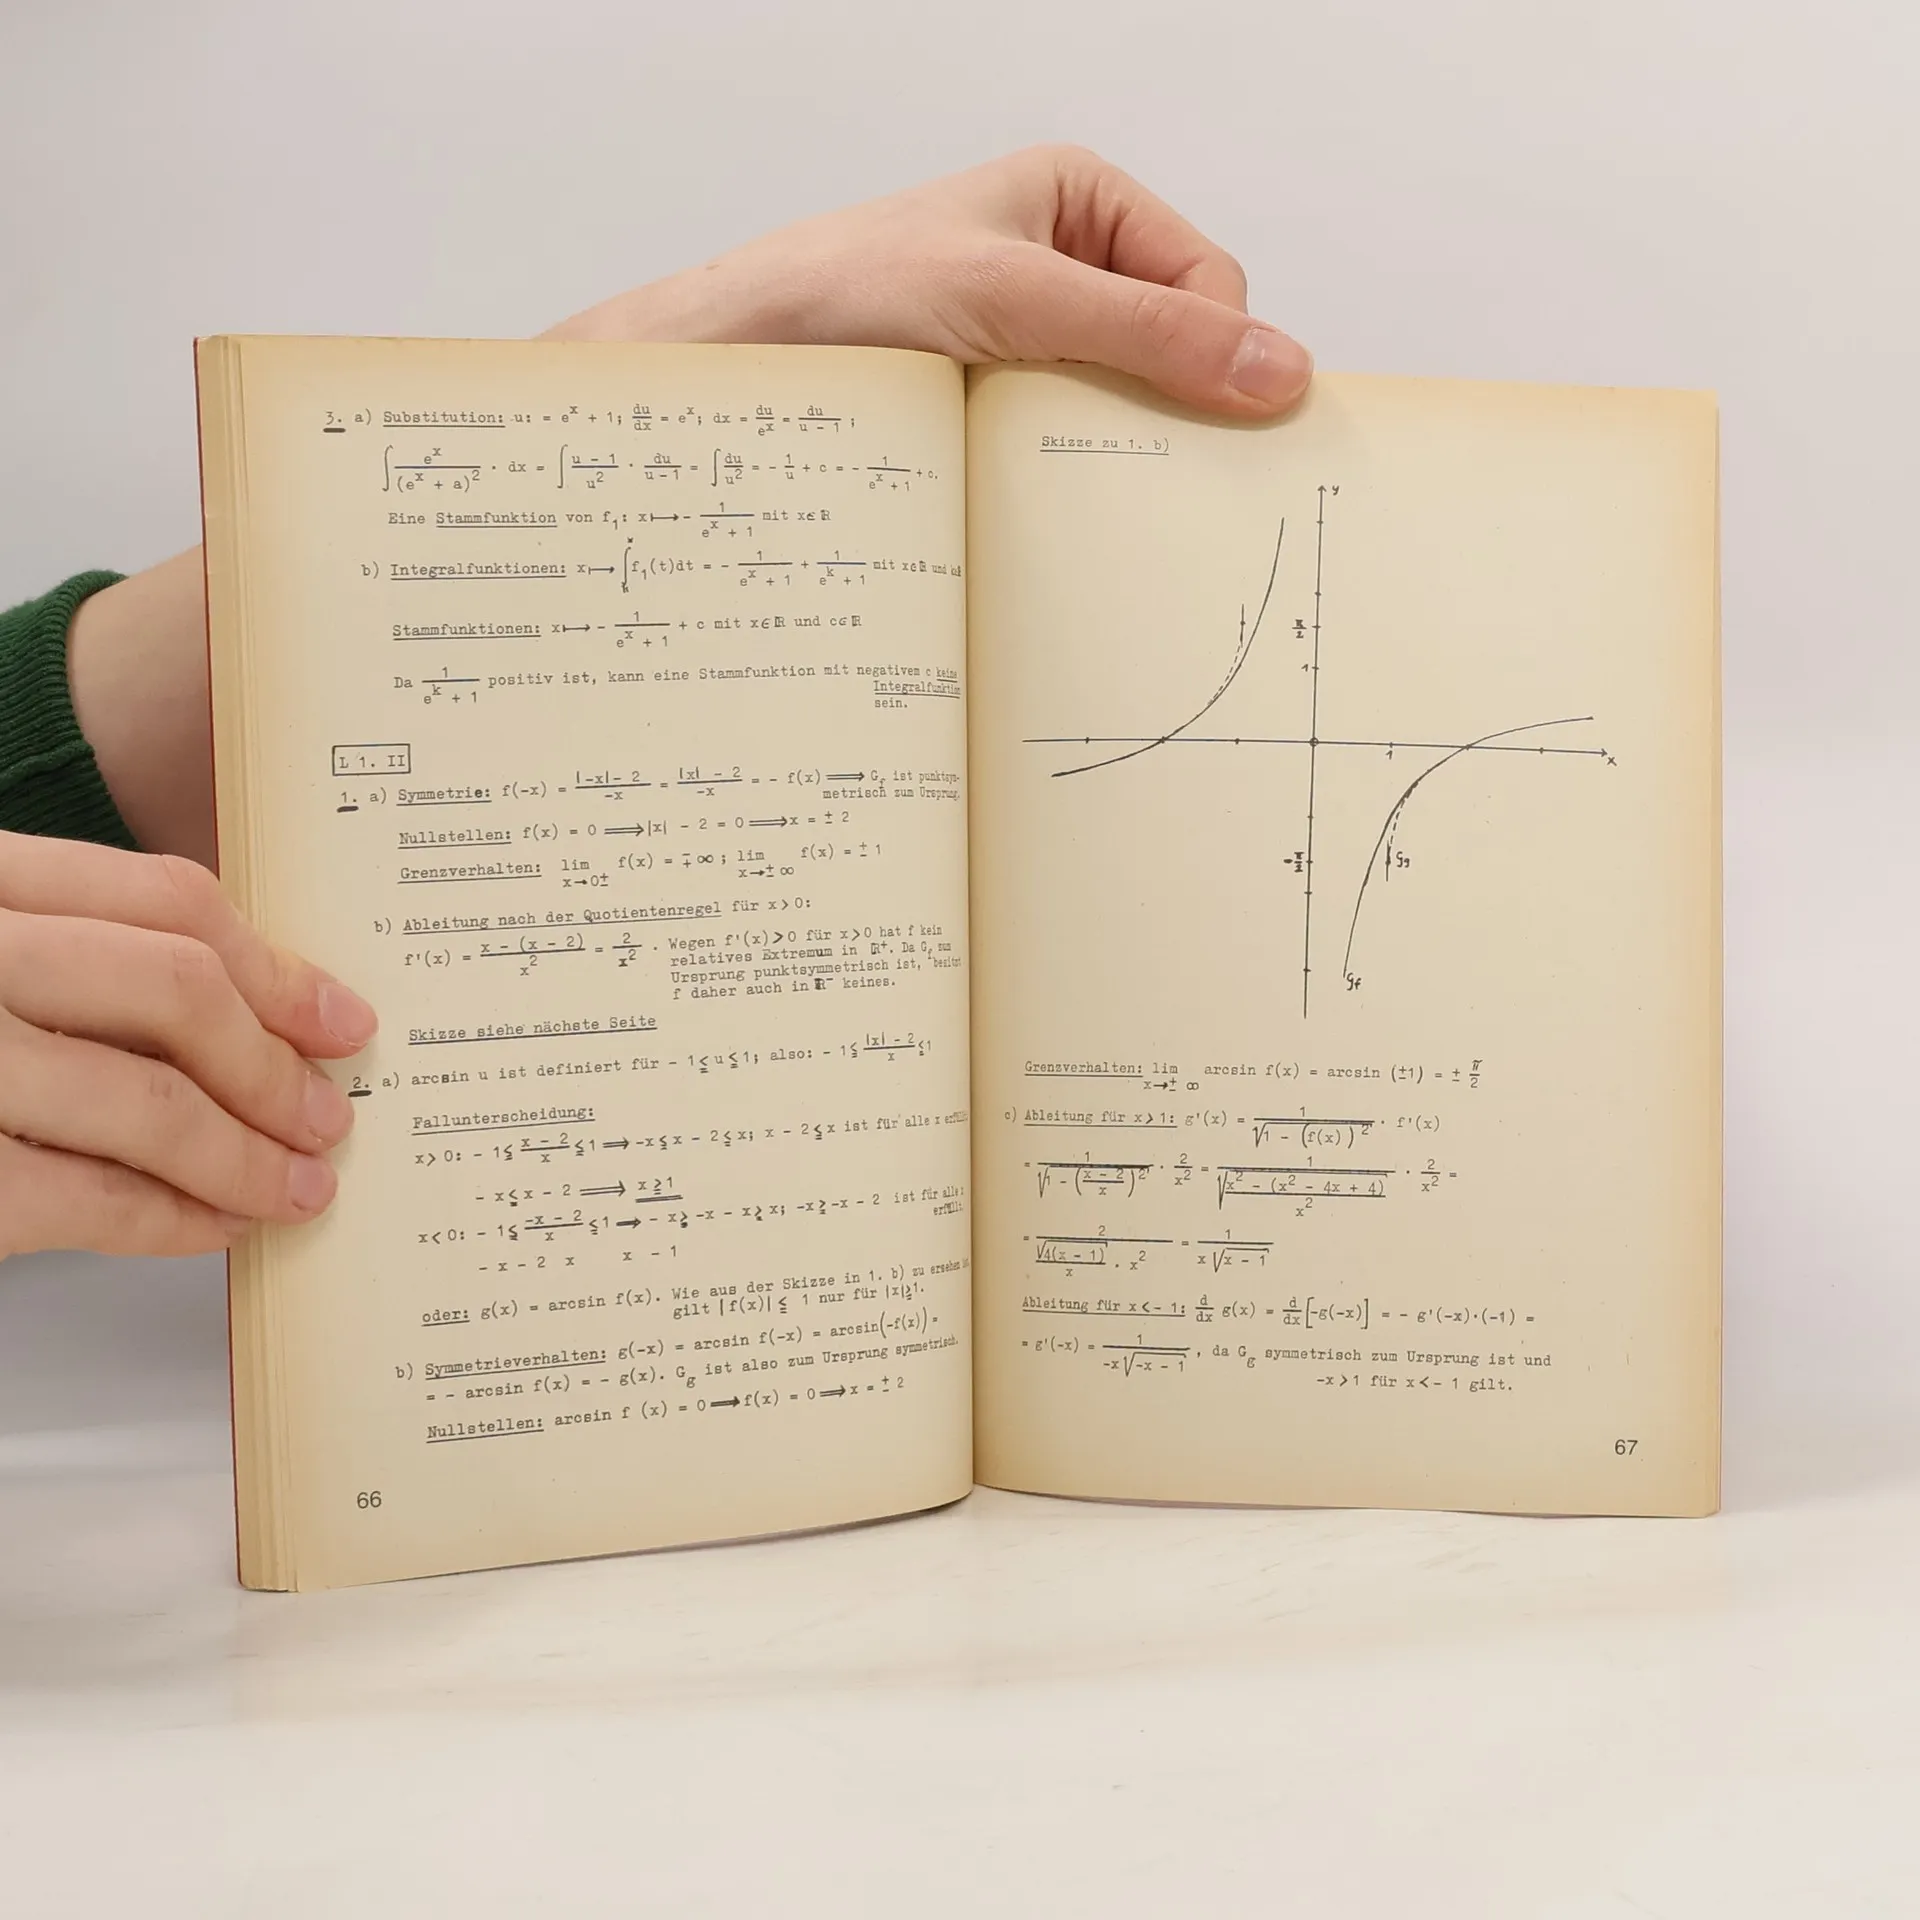 3. a) Substitution: u: = e^x + 1; du/dx = e^x; dx = du/e^x = du/(u - 1) ;
∫ e^x/(e^x + a)^2 · dx = ∫ (u - 1)/u^2 · du/(u - 1) = ∫ du/u^2 = - 1/u + c = - 1/(e^x + 1) + c.
Eine Stammfunktion von f_1: x ↦ - 1/(e^x + 1) mit x∈ℝ
b) Integralfunktionen: x ↦ ∫_k^x f_1(t)dt = - 1/(e^x + 1) + 1/(e^k + 1) mit x∈ℝ und k∈ℝ
Stammfunktionen: x ↦ - 1/(e^x + 1) + c mit x∈ℝ und c∈ℝ
Da 1/(e^k + 1) positiv ist, kann eine Stammfunktion mit negativem c keine
Integralfunktion
sein.
L 1. II
1. a) Symmetrie: f(-x) = (|-x| - 2)/(-x) = (|x| - 2)/(-x) = - f(x) ⟹ G_f ist punktsym-
metrisch zum Ursprung.
Nullstellen: f(x) = 0 ⟹ |x| - 2 = 0 ⟹ x = ± 2
Grenzverhalten: lim_{x→0±} f(x) = ∓∞ ; lim_{x→±∞} f(x) = ± 1
b) Ableitung nach der Quotientenregel für x > 0:
f'(x) = (x - (x - 2))/x^2 = 2/x^2 . Wegen f'(x) > 0 für x > 0 hat f kein
relatives Extremum in ℝ⁺. Da G_f zum
Ursprung punktsymmetrisch ist, besitzt
f daher auch in ℝ⁻ keines.
Skizze siehe nächste Seite
2. a) arcsin u ist definiert für - 1 ≦ u ≦ 1; also: - 1 ≦ (|x| - 2)/x ≦ 1
Fallunterscheidung:
x > 0: - 1 ≦ (x - 2)/x ≦ 1 ⟹ -x ≦ x - 2 ≦ x; x - 2 ≦ x ist für alle x erfüllt
- x ≦ x - 2 ⟹ x ≧ 1
x < 0: - 1 ≦ (-x - 2)/x ≦ 1 ⟹ - x ≧ -x - x ≧ x; -x ≧ -x - 2 ist für alle x
erfüllt
- x - 2 x x - 1
oder: g(x) = arcsin f(x). Wie aus der Skizze in 1. b) zu ersehen ist,
gilt |f(x)| ≦ 1 nur für |x| ≧ 1.
b) Symmetrieverhalten: g(-x) = arcsin f(-x) = arcsin(-f(x)) =
= - arcsin f(x) = - g(x). G_g ist also zum Ursprung symmetrisch.
Nullstellen: arcsin f (x) = 0 ⟹ f(x) = 0 ⟹ x = ± 2
66
Skizze zu 1. b)
y
π/2
1
1
x
-π/2
Gg
Gf
Grenzverhalten: lim_{x→±∞} arcsin f(x) = arcsin (±1) = ± π/2
c) Ableitung für x > 1: g'(x) = 1/√(1 - (f(x))^2) · f'(x)
= 1/√(1 - ((x - 2)/x)^2) · 2/x^2 = 1/√((x^2 - (x^2 - 4x + 4))/x^2) · 2/x^2 =
= 2/(√(4(x - 1))/x · x^2) = 1/(x √(x - 1))
Ableitung für x < - 1: d/dx g(x) = d/dx [-g(-x)] = - g'(-x)·(-1) =
= g'(-x) = 1/(-x √(-x - 1)) , da G_g symmetrisch zum Ursprung ist und
-x > 1 für x < - 1 gilt.
67